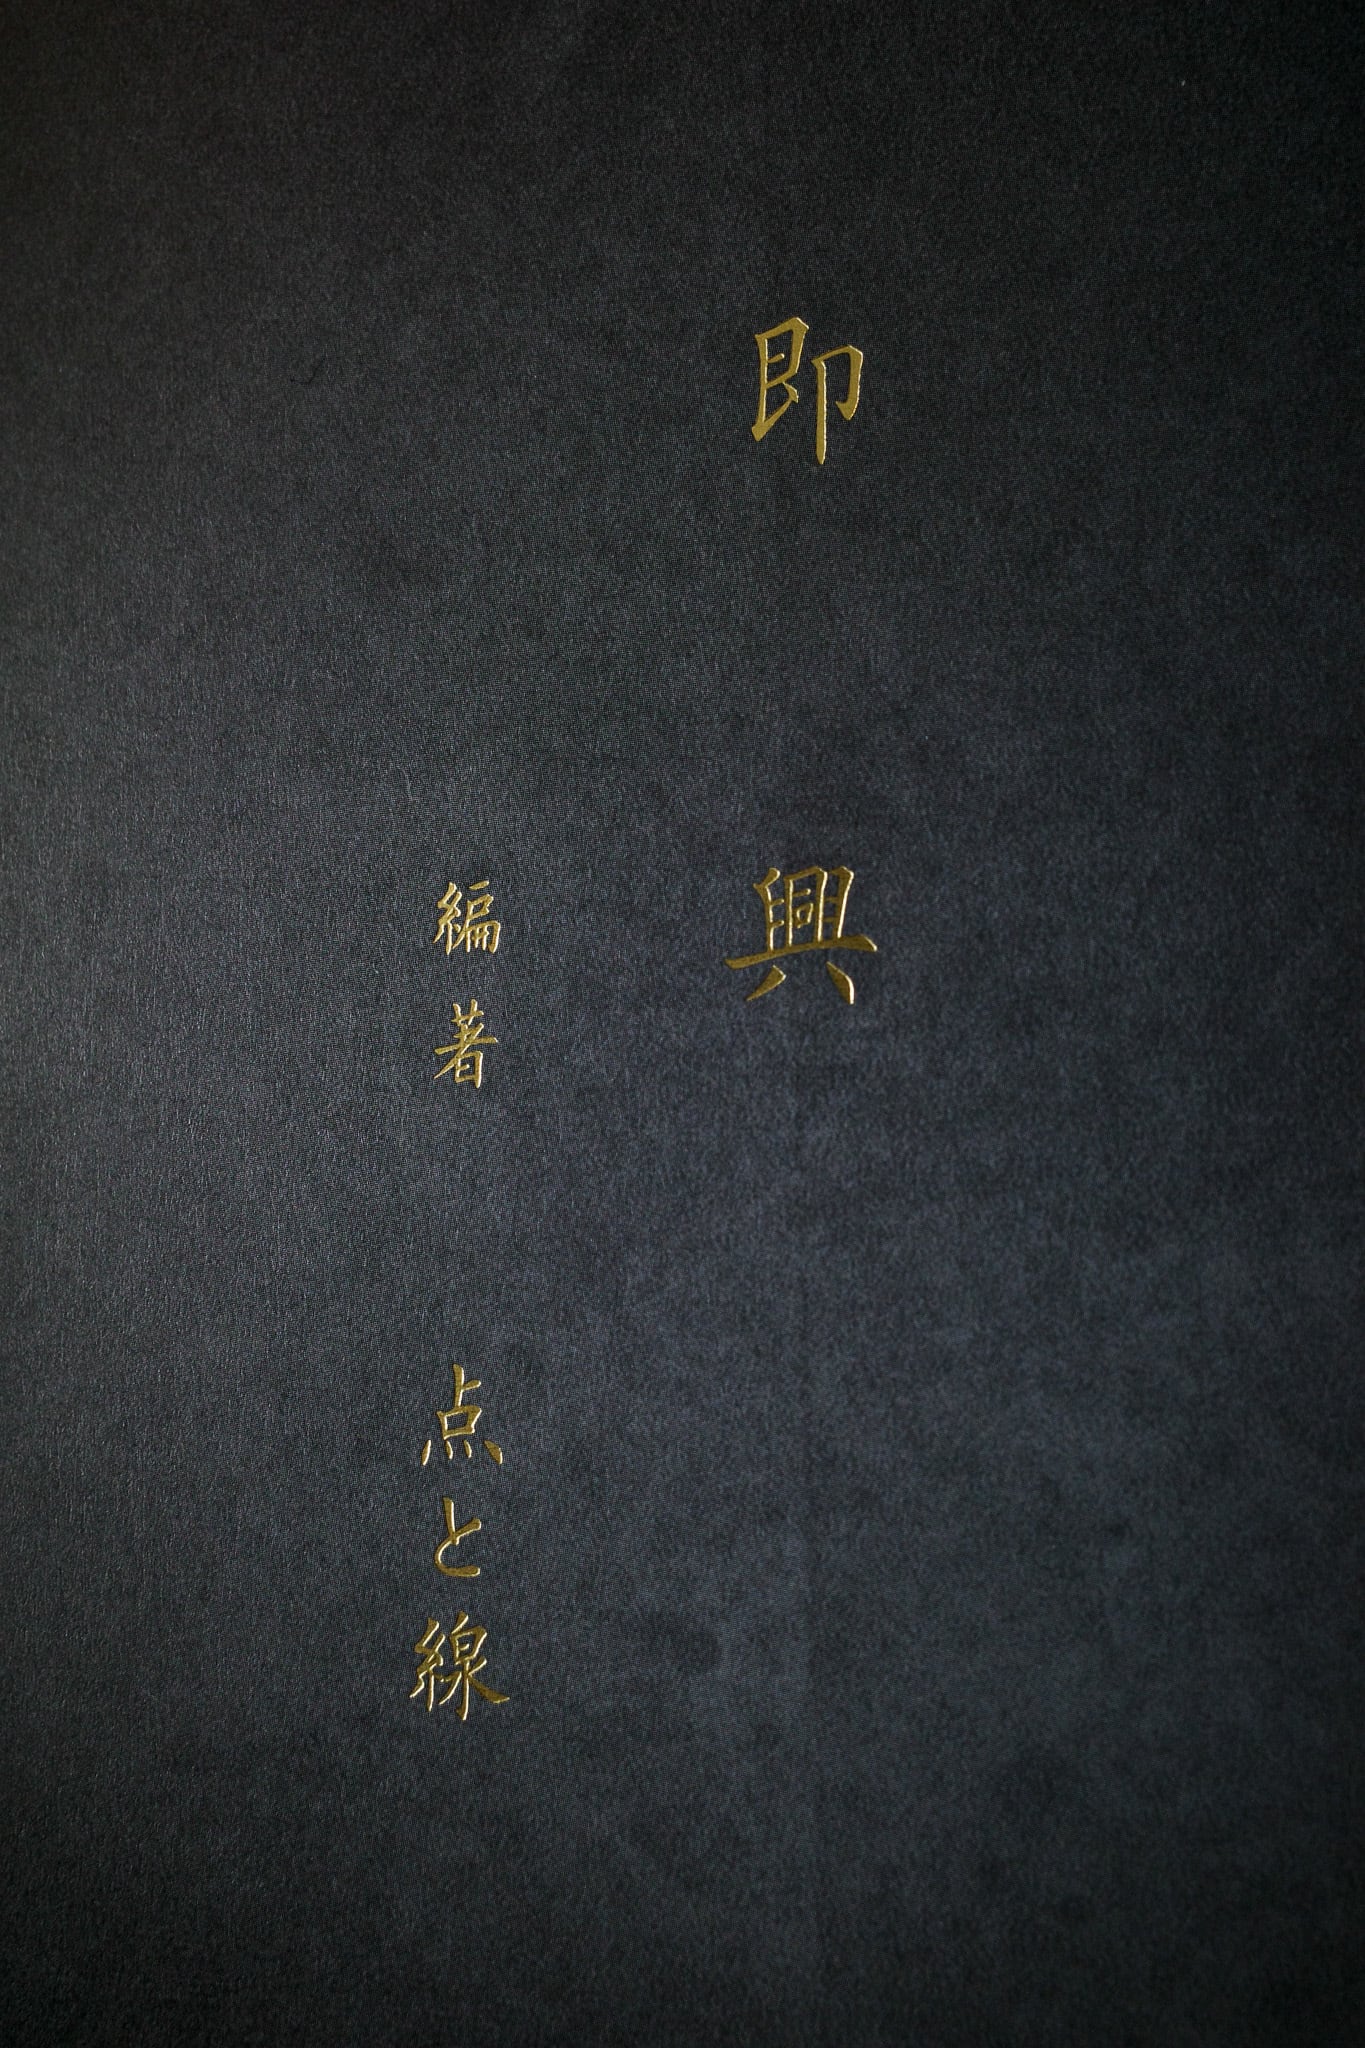 即興
編著 点と線